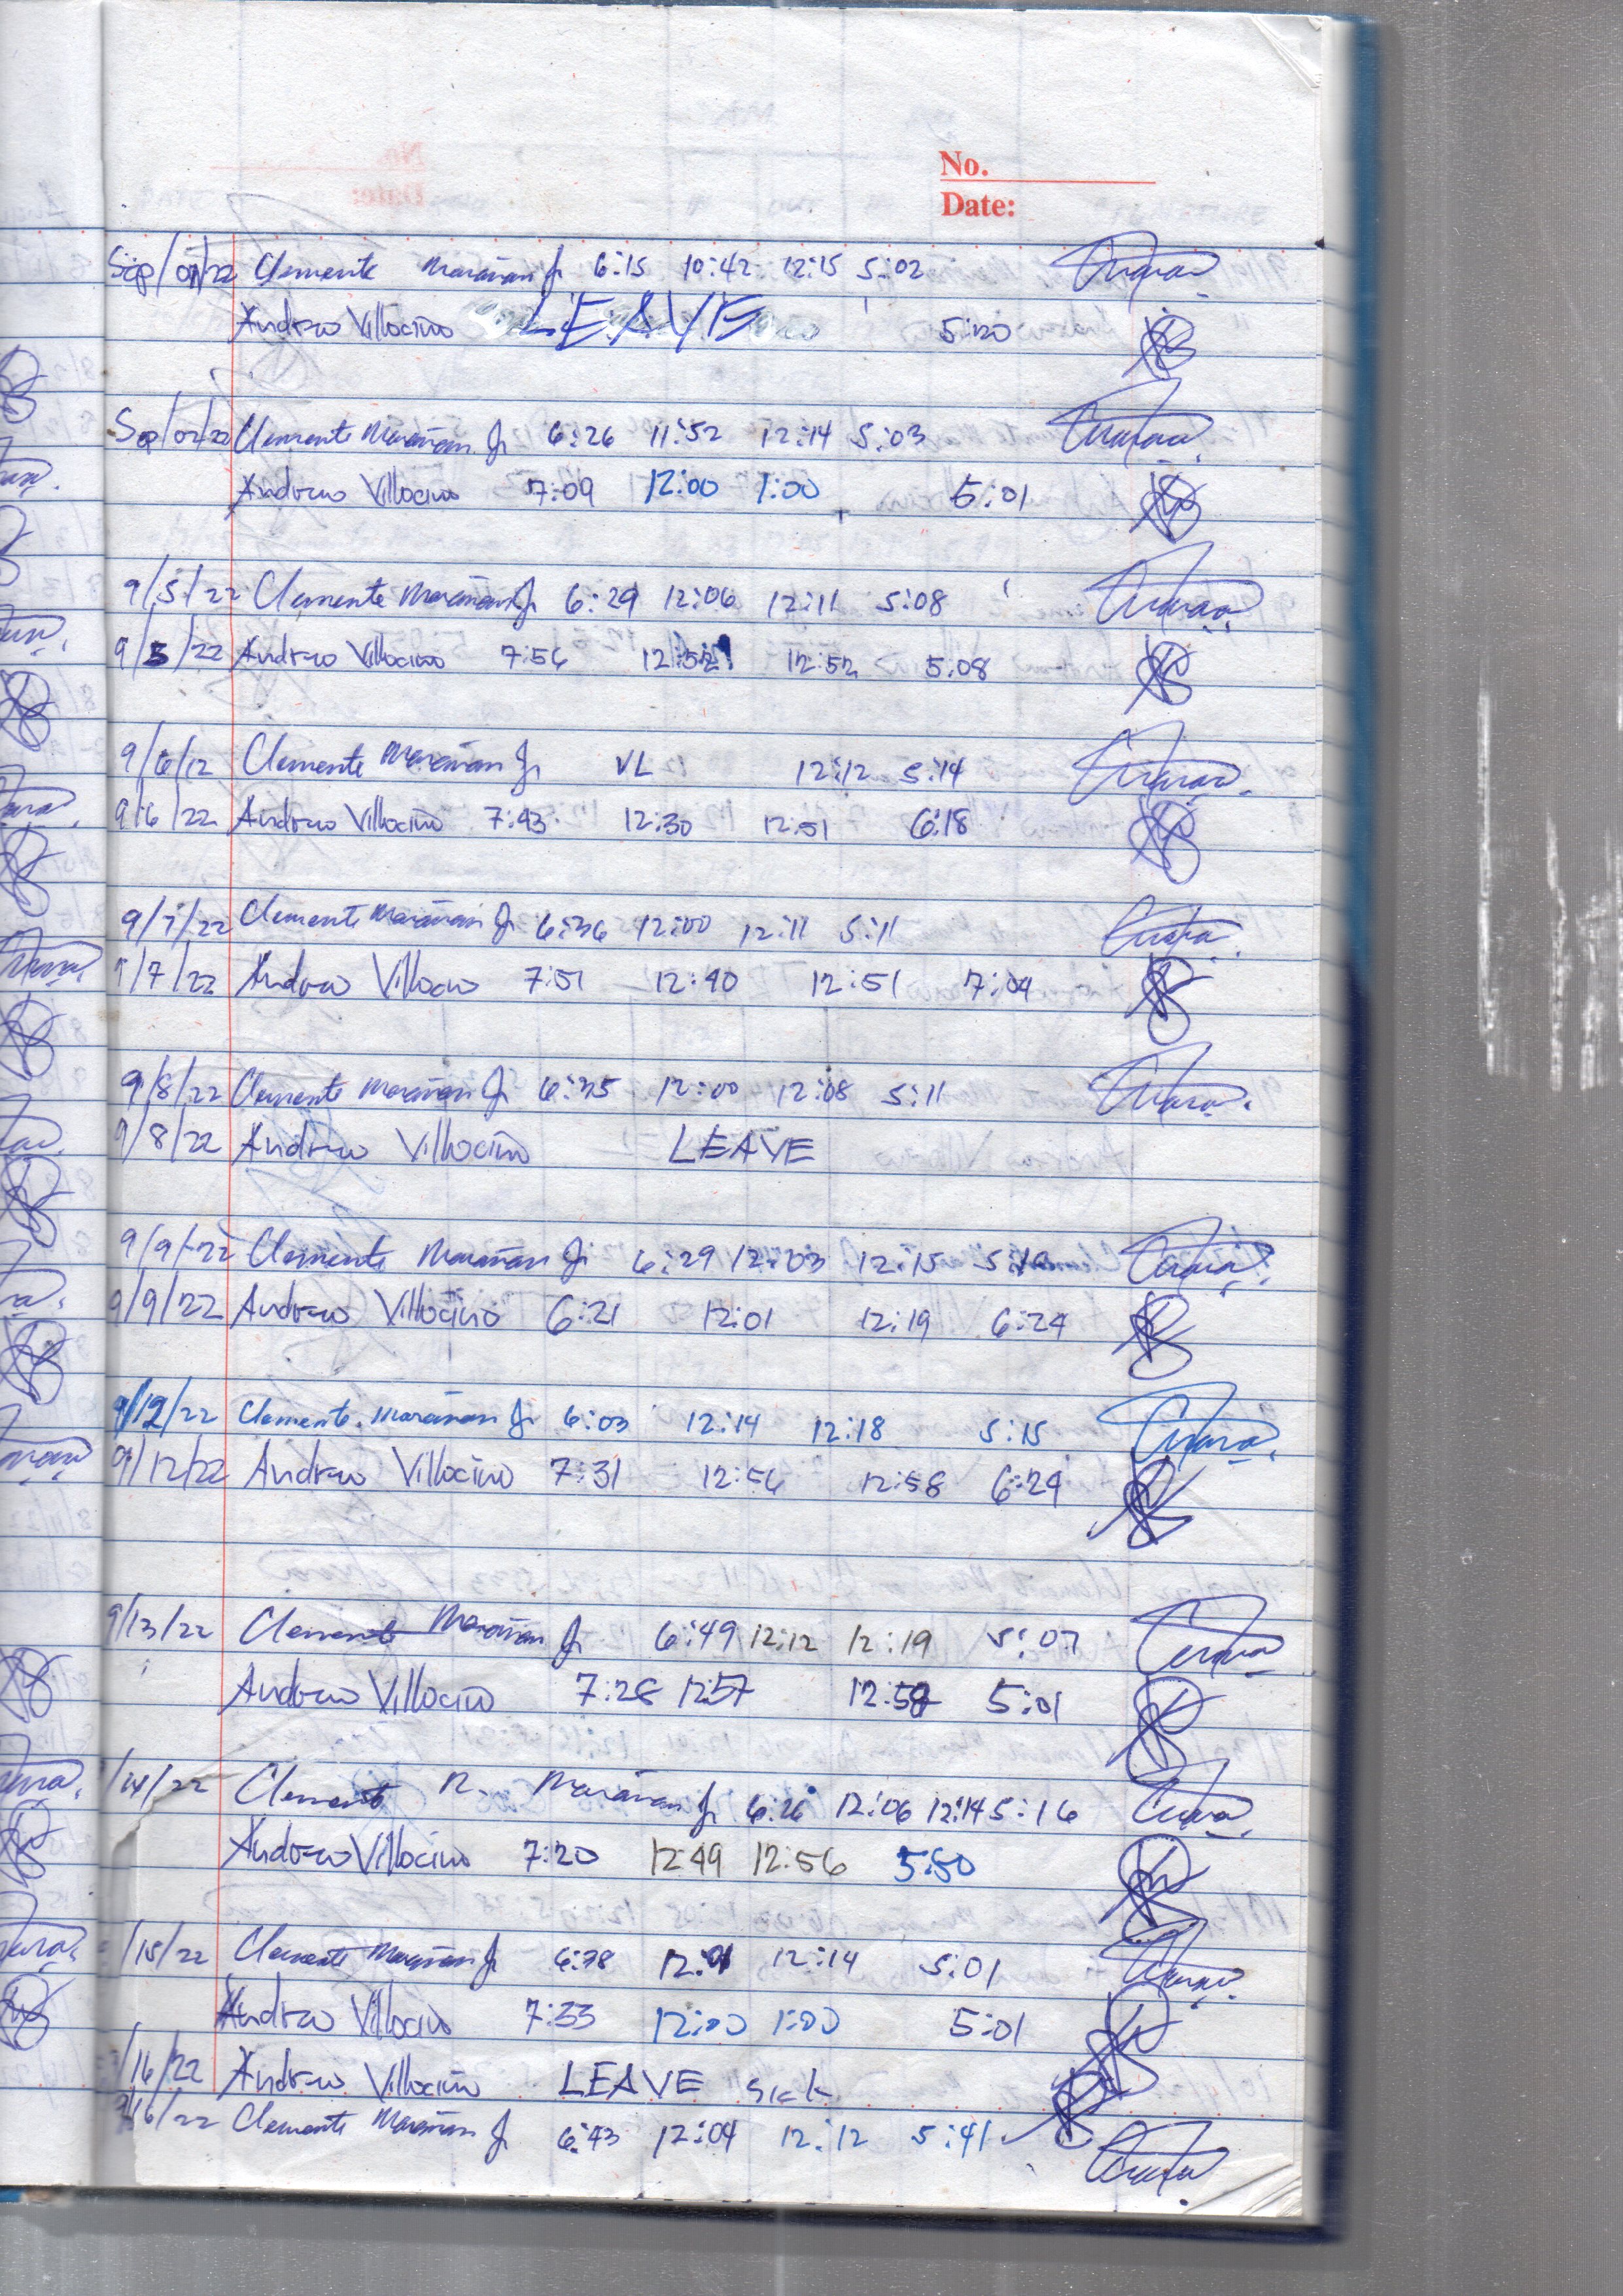 No.
Date:
Sep/01/22 Clemente Marañan Jr 6:15 10:42 12:15 5:02
Andrew Villocino LEAVE 5:20
Sep/02/22 Clemente Marañan Jr 6:26 11:52 12:14 5:03
Andrew Villocino 7:09 12:00 1:00 5:01
9/5/22 Clemente Marañan Jr 6:29 12:06 12:11 5:08
9/5/22 Andrew Villocino 7:56 12:52 5:08
9/6/12 Clemente Marañan Jr VL 12:12 5:14
9/6/22 Andrew Villocino 7:43 12:30 12:51 6:18
9/7/22 Clemente Marañan Jr 6:36 12:00 12:11 5:11
9/7/22 Andrew Villocino 7:51 12:40 12:51 7:04
9/8/22 Clemente Marañan Jr 6:35 12:00 12:08 5:11
9/8/22 Andrew Villocino LEAVE
9/9/22 Clemente Marañan Jr 6:29 12:03 12:15
9/9/22 Andrew Villocino 6:21 12:01 12:19 6:24
9/12/22 Clemente Marañan Jr 6:03 12:14 12:18 5:15
9/12/22 Andrew Villocino 7:31 12:56 12:58 6:24
9/13/22 Clemente Marañan Jr 6:49 12:12 12:19 5:07
Andrew Villocino 7:28 12:57 5:01
/14/22 Clemente R. Marañan Jr 6:26 12:06 12:14 5:16
Andrew Villocino 7:20 12:49 12:56 5:50
/15/22 Clemente Marañan Jr 6:38 12:14 5:01
Andrew Villocino 7:33 12:00 1:00 5:01
/16/22 Andrew Villocino LEAVE Sick
9/16/22 Clemente Marañan Jr 6:43 12:04 12:12 5:41